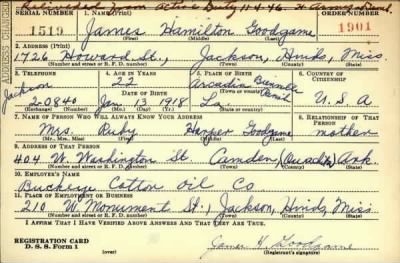 Relieved from Active Duty 11-4-46
SERIAL NUMBER
1. NAME (Print)
ORDER NUMBER
1519
James Hamilton Goodgame
1901
(First) (Middle) (Last)
ADDRESS CHANGE
2. ADDRESS (Print)
1726 Howard St., Jackson, Hinds, Miss.
(Number and street or R. F. D. number) (Town) (County) (State)
3. TELEPHONE
4. AGE IN YEARS
5. PLACE OF BIRTH
6. COUNTRY OF CITIZENSHIP
Jackson
22
Arcadia
DATE OF BIRTH
2-0840
Jan. 13, 1918
La.
U. S. A
(Exchange) (Number)
(Mo.) (Day) (Yr.)
(State or country)
7. NAME OF PERSON WHO WILL ALWAYS KNOW YOUR ADDRESS
8. RELATIONSHIP OF THAT PERSON
Mrs. Ruby Harper Goodgame
mother
(Mr., Mrs., Miss) (First) (Middle) (Last)
9. ADDRESS OF THAT PERSON
404 W. Washington St. Camden, Ouachita, Ark.
(Number and street or R. F. D. number) (Town) (County) (State)
10. EMPLOYER'S NAME
Buckeye Cotton Oil Co
11. PLACE OF EMPLOYMENT OR BUSINESS
210 W. Monument St., Jackson, Hinds, Miss.
(Number and street or R. F. D. number) (Town) (County) (State)
I AFFIRM THAT I HAVE VERIFIED ABOVE ANSWERS AND THAT THEY ARE TRUE.
REGISTRATION CARD
D. S. S. Form 1
James H. Goodgame
(Registrant's signature)